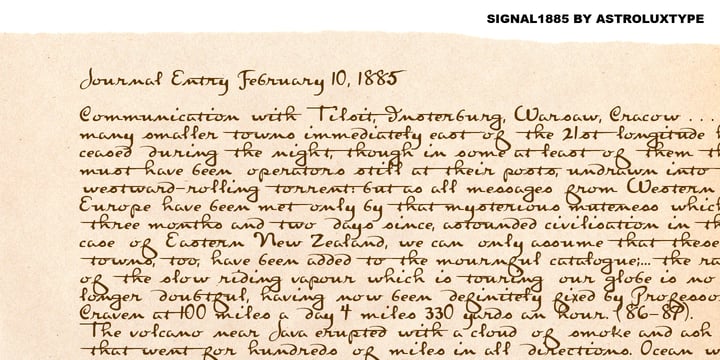 SIGNAL1885 BY ASTROLUXTYPE
Journal Entry February 10, 1885
Communication with Tilsit, Insterburg, Warsaw, Cracow . . .
many smaller towns immediately east of the 21st longitude
ceased during the night, though in some at least of them
must have been operators still at their posts, undrawn into
westward-rolling torrent: but as all messages from Western
Europe have been met only by that mysterious muteness which
three months and two days since, astounded civilisation in
case of Eastern New Zealand, we can only assume that these
towns, too, have been added to the mournful catalogue;... the
of the slow riding vapour which is touring our globe is no
longer doubtful, having now been definitely fixed by
Craven at 100 miles a day 4 miles 330 yards an hour. (86-87).
The volcano near Java erupted with a cloud of smoke and ash
that went for hundreds of miles in all directions Ocean